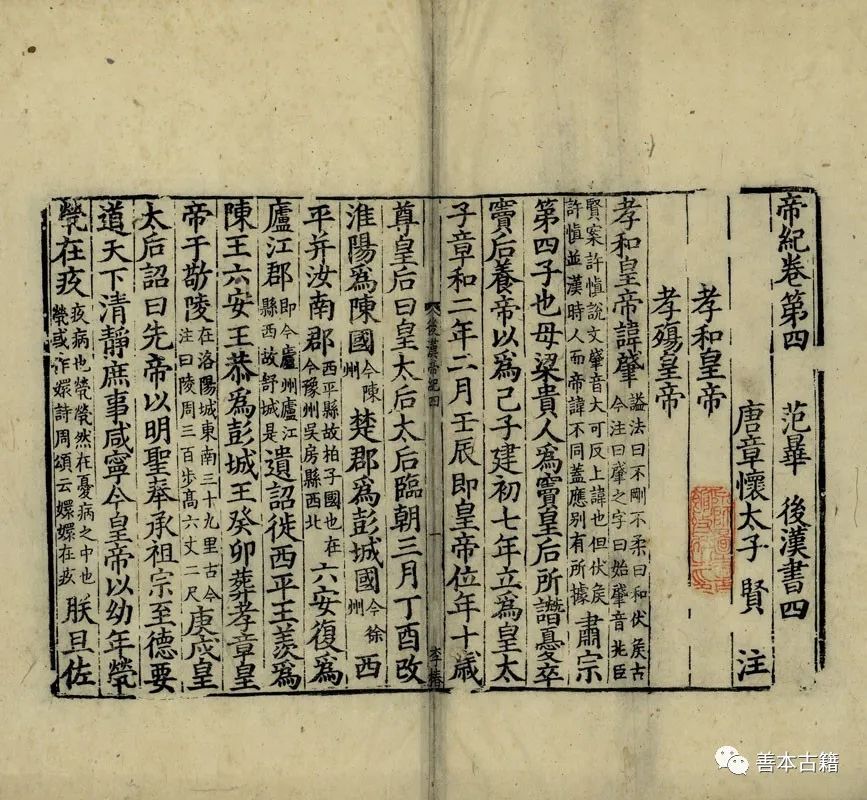 帝紀卷第四 范曄 後漢書四
唐章懷太子 賢 注
孝和皇帝
孝殤皇帝
孝和皇帝諱肇 謚法曰不剛不柔曰和伏矦古今注曰肇之字曰始肇音兆臣
賢案許慎說文肇音大可反上諱也但伏矦許慎並漢時人而帝諱不同蓋應別有所據 肅宗
第四子也母梁貴人爲竇皇后所譖憂卒
竇后養帝以爲己子建初七年立爲皇太
子章和二年二月壬辰即皇帝位年十歲
後漢帝紀四 一 李椿
尊皇后曰皇太后太后臨朝三月丁酉改
淮陽爲陳國 今陳州 楚郡爲彭城國 今徐州 西
平并汝南郡 西平縣故柏子國也在今豫州吳房縣西北 六安復爲
廬江郡 即今廬州廬江縣西故舒城是 遺詔徙西平王羨爲
陳王六安王恭爲彭城王癸卯葬孝章皇
帝于敬陵 在洛陽城東南三十九里古今注曰陵周三百步高六丈二尺 庚戌皇
太后詔曰先帝以明聖奉承祖宗至德要
道天下清靜庶事咸寧今皇帝以幼年煢
煢在疚 疚病也煢煢然在憂病之中也煢或作嬛詩周頌云嬛嬛在疚 朕且佐
善本古籍